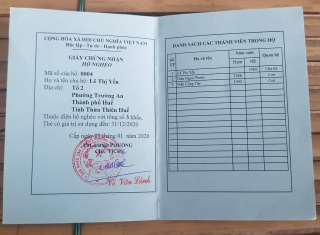 CỘNG HÒA XÃ HỘI CHỦ NGHĨA VIỆT NAM
Độc lập - Tự do - Hạnh phúc
GIẤY CHỨNG NHẬN
HỘ NGHÈO
Mã số của hộ: 0004
Họ và tên chủ hộ: Lê Thị Yến
Địa chỉ: Tổ 2
Phường Trường An
Thành phố Huế
Tỉnh Thừa Thiên Huế
Thuộc diện hộ nghèo với tổng số 3 khẩu.
Thẻ có giá trị sử dụng đến: 31/12/2020
Cấp ngày 01 tháng 01 năm 2020
CHỦ TỊCH
DANH SÁCH CÁC THÀNH VIÊN TRONG HỘ
Số TT
Họ và tên
Năm sinh
Quan hệ
Nam
Nữ
1 Lê Thị Yến Chủ hộ
2 Con
3 Con